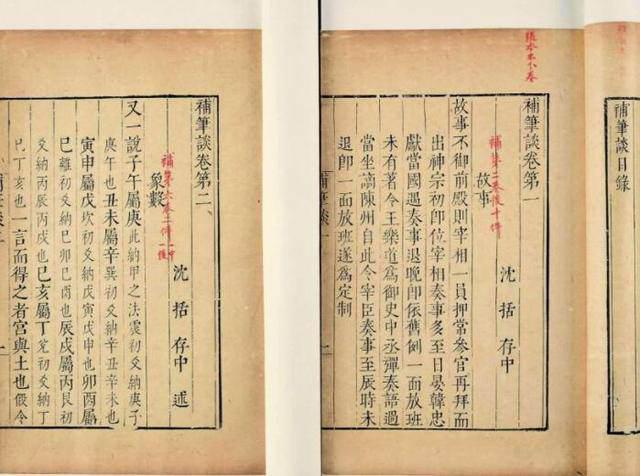 補筆談目錄
補筆談卷第一
沈括存中
故事
補第二卷後十件
故事不御前殿則宰相一員押常參官再拜而
出神宗初即位宰相奏事多至日晏韓忠
獻當國遇奏事退晚即依舊例一面放班
未有著令王樂道為御史中丞彈奏語過
當坐謫陳州自此令宰臣奏事至辰時未
退即一面放班遂為定制
補筆談卷第二
沈括存中述
象數
又一說子午屬庚此納甲之法震初爻納庚子
庚午也丑未屬辛巽初爻納辛丑辛未也
寅申屬戊坎初爻納戊寅戊申也卯酉屬
己離初爻納己卯己酉也辰戌屬丙艮初
爻納丙辰丙戌也巳亥屬丁兌初爻納丁
巳丁亥也一言而得之者宮與土也假令